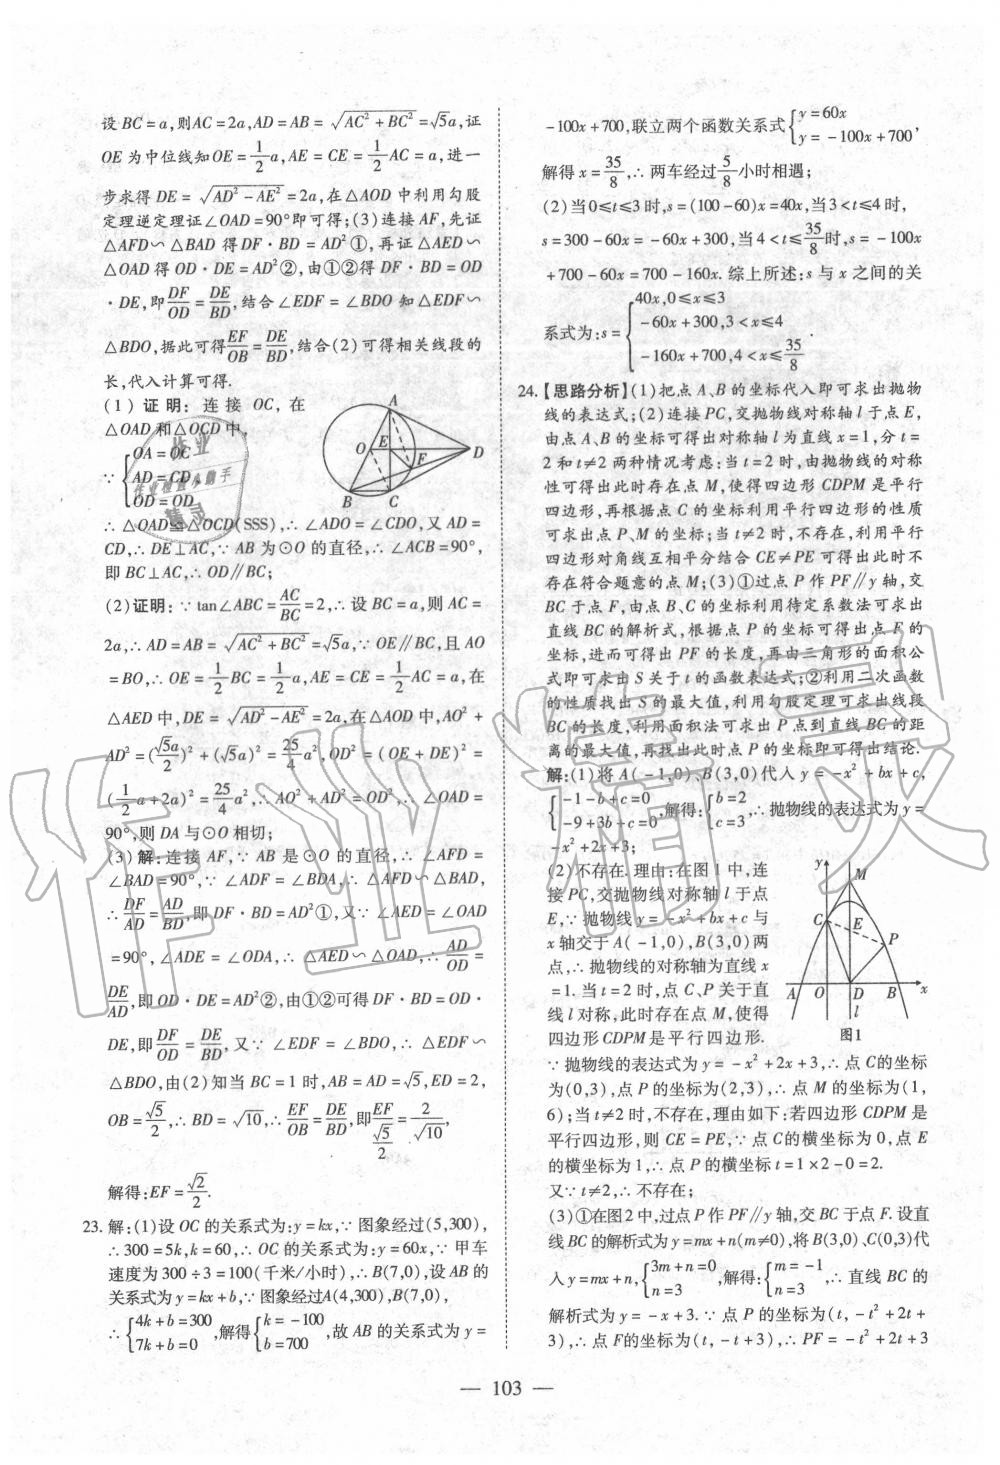 设 BC=a,则AC=2a,AD=AB=√(AC²+BC²)=√5a,证
OE为中位线知OE=1/2 a,AE=CE=1/2 AC=a,进一
步求得 DE=√(AD²-AE²)=2a,在△AOD 中利用勾股
定理逆定理证∠OAD=90°即可得;(3)连接 AF,先证
△AFD∽△BAD 得 DF·BD=AD²①,再证△AED∽
△OAD 得 OD·DE=AD²②,由①②可得 DF·BD=OD
·DE,即DF/OD=DE/BD,结合∠EDF=∠BDO 知△EDF∽
△BDO,据此可得EF/OB=DE/BD,结合(2)可得相关线段的
长,代入计算可得.
(1) 证明: 连接 OC, 在
△OAD和△OCD中,
∵{OA=OC
AD=CD,
OD=OD
∴△OAD≌△OCD(SSS),∴∠ADO=∠CDO,又 AD=
CD,∴DE⊥AC,∵AB 为⊙O 的直径,∴∠ACB=90°,
即 BC⊥AC,∴OD∥BC;
(2)证明:∵tan∠ABC=AC/BC=2,∴设 BC=a,则 AC=
2a,∴AD=AB=√(AC²+BC²)=√5a,∵OE∥BC,且 AO
=BO,∴OE=1/2 BC=1/2 a,AE=CE=1/2 AC=a,在
△AED 中,DE=√(AD²-AE²)=2a,在△AOD 中,AO²+
AD²=(√5a/2)²+(√5a)²=25/4 a²,OD²=(OE+DE)²=
(1/2 a+2a)²=25/4 a²,∴AO²+AD²=OD²,∴∠OAD=
90°,则 DA 与⊙O 相切;
(3) 解:连接 AF,∵AB 是⊙O 的直径,∴∠AFD=
∠BAD=90°,∵∠ADF=∠BDA,∴△AFD∽△BAD,
∴DF/AD=AD/BD,即 DF·BD=AD²①,又∵∠AED=∠OAD
=90°,∠ADE=∠ODA,∴△AED∽△OAD,∴AD/OD=
DE/AD,即OD·DE=AD²②,由①②可得 DF·BD=OD·
DE,即DF/OD=DE/BD,又∵∠EDF=∠BDO,∴△EDF∽
△BDO,由(2)知当 BC=1 时,AD=√5,ED=2,
OB=√5/2,∴BD=√10,∴EF/OB=DE/BD,即EF/(√5/2)=2/√10,
解得:EF=√2/2.
23. 解:(1)设 OC 的关系式为:y=kx,∵图象经过(5,300),
∴300=5k,k=60,∴OC 的关系式为:y=60x,∵甲车
速度为 300÷3=100(千米/小时),∴B(7,0),设 AB 的
关系式为y=kx+b,∵图象经过A(4,300),B(7,0),
∴{4k+b=300
7k+b=0,解得{k=-100
b=700,故 AB 的关系式为y=
-100x+700,联立两个函数关系式{y=60x
y=-100x+700,
解得 x=35/8,∴两车经过5/8小时相遇;
(2)当0≤t≤3时,s=(100-60)x=40x,当3<t≤4时,
s=300-60x=-60x+300,当 4<t≤35/8时,s=-100x
+700-60x=700-160x. 综上所述:s 与 x 之间的关
系式为:s={40x,0≤x≤3
-60x+300,3<x≤4
-160x+700,4<x≤35/8.
24.【思路分析】(1)把点 A、B 的坐标代入即可求出抛物
线的表达式;(2)连接 PC,交抛物线对称轴 l 于点 E,
由点 A、B 的坐标可得出对称轴 l 为直线 x=1,分 t=
2 和 t≠2 两种情况考虑:当 t=2 时,由抛物线的对称
性可得出此时存在点 M,使得四边形 CDPM 是平行
四边形,再根据点 C 的坐标利用平行四边形的性质可
求出点 P、M 的坐标;当 t≠2 时,不存在,利用平行
四边形对角线互相平分结合 CE≠PE 可得出此时不
存在符合题意的点 M;(3)①过点 P 作 PF∥y 轴,交
BC 于点 F,由点 B、C 的坐标利用待定系数法可求出
直线 BC 的解析式,根据点 P 的坐标可得出点 F 的
坐标,进而可得出 PF 的长度,再由三角形的面积公
式即可求出 S 关于 t 的函数表达式;②利用二次函数
的性质找出 S 的最大值,利用勾股定理可求出线段
BC 的长度,利用面积法可求出 P 点到直线 BC 的距
离的最大值,再找出此时点 P 的坐标即可得出结论.
解:(1)将 A(-1,0)、B(3,0)代入 y=-x²+bx+c,
{-1-b+c=0
-9+3b+c=0,解得:{b=2
c=3,∴抛物线的表达式为 y=
-x²+2x+3;
(2)不存在. 理由:在图 1 中,连
接 PC,交抛物线对称轴 l 于点
E,∵抛物线 y=-x²+bx+c 与
x轴交于A(-1,0),B(3,0)两
点,∴抛物线的对称轴为直线 x
=1. 当 t=2 时,点 C、P 关于直
线 l 对称,此时存在点 M,使得
四边形 CDPM 是平行四边形.
图1
∵抛物线的表达式为 y=-x²+2x+3,∴点 C的坐标
为(0,3),点 P 的坐标为(2,3),∴点 M 的坐标为(1,
6);当 t≠2 时,不存在,理由如下:若四边形 CDPM 是
平行四边形,则 CE=PE,∵点 C的横坐标为 0,点 E
的横坐标为 1,∴点 P 的横坐标 t=1×2-0=2.
又∵t≠2,∴不存在;
(3)①在图2 中,过点 P 作 PF∥y 轴,交 BC 于点 F. 设直
线 BC 的解析式为y=mx+n(m≠0),将 B(3,0)、C(0,3)代
入y=mx+n,{3m+n=0
n=3,解得:{m=-1
n=3,∴直线 BC 的
解析式为 y=-x+3.∵点 P 的坐标为(t,-t²+2t+
3),∴点 F的坐标为(t,-t+3),∴PF=-t²+2t+3
— 103 —